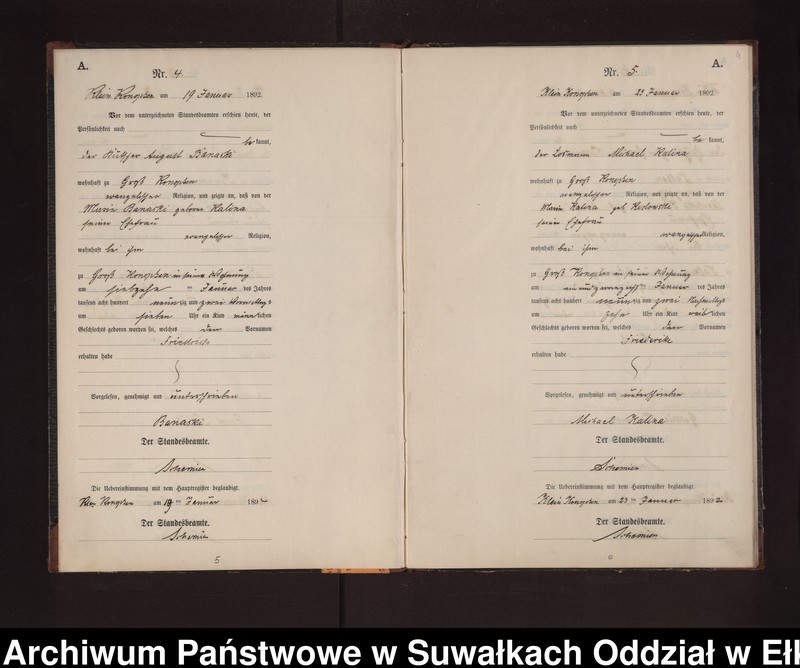 A.
Nr. 4.
Klein Konopken am 19 Januar 1892.
Vor dem unterzeichneten Standesbeamten erschien heute, der
Persönlichkeit nach
be kannt,
der August Banaski
wohnhaft zu Groß Konopken
evangelischer Religion, und zeigte an, daß von der
Marie Banaski geborne Kalina
seiner Ehefrau
evangelischer Religion,
wohnhaft bei ihm
zu Groß Konopken in seiner Wohnung
am siebzehn ten Januar des Jahres
tausend acht hundert neunzig und zwei Vormittags
um sieben Uhr ein Kind männlichen
Geschlechts geboren worden sei, welches den Vornamen
Friedrich
erhalten habe
Vorgelesen, genehmigt und unterschrieben
Banaski
Der Standesbeamte.
Schemien
Die Uebereinstimmung mit dem Hauptregister beglaubigt.
Klein Konopken am 19 ten Januar 1892
Der Standesbeamte.
Schemien
5
A.
Nr. 5.
Klein Konopken am 22 Januar 1892
Vor dem unterzeichneten Standesbeamten erschien heute, der
Persönlichkeit nach
be kannt,
der Losmann Michael Kalina
wohnhaft zu Groß Konopken
evangelischer Religion, und zeigte an, daß von der
Marie Kalina geb. Koslowski
seiner Ehefrau
evangelischer Religion,
wohnhaft bei ihm
zu Groß Konopken in seiner Wohnung
am ein und zwanzigsten Januar des Jahres
tausend acht hundert neunzig und zwei Nachmittags
um zehn Uhr ein Kind weiblichen
Geschlechts geboren worden sei, welches den Vornamen
Friederike
erhalten habe
Vorgelesen, genehmigt und unterschrieben
Michael Kalina
Der Standesbeamte.
Schemien
Die Uebereinstimmung mit dem Hauptregister beglaubigt.
Klein Konopken am 23 ten Januar 1892
Der Standesbeamte.
Schemien
6
Archiwum Państwowe w Suwałkach Oddział w Eł